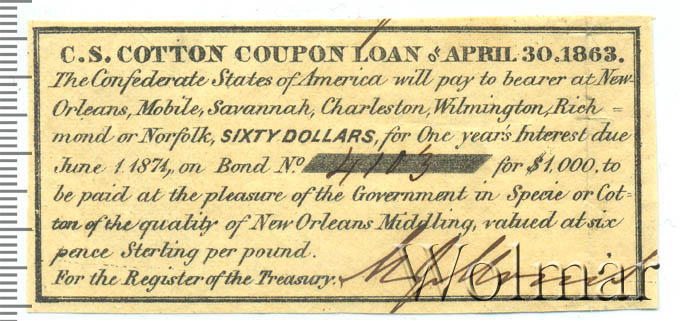 C.S. COTTON COUPON LOAN of APRIL 30.1863.
The Confederate States of America will pay to bearer at New-
Orleans, Mobile, Savannah, Charleston, Wilmington, Rich=
mond or Norfolk, SIXTY DOLLARS, for One year's Interest due
June 1.1874, on Bond No. 4103 for $1,000, to
be paid at the pleasure of the Government in Specie or Cot-
ton of the quality of New Orleans Middling, valued at six
pence Sterling per pound.
For the Register of the Treasury.
Wolmar